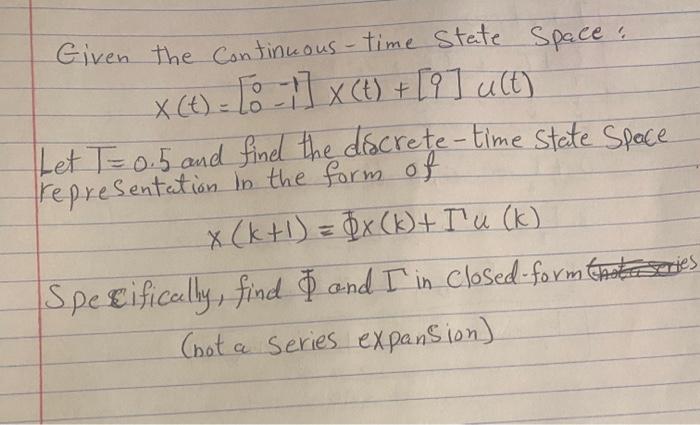 Given the Continuous-time State Space:
x(t) = [0 -1 0 -1] x(t) + [9] u(t)
Let T=0.5 and find the discrete-time State Space
representation in the form of
x(k+1) = Φx(k) + Γu(k)
Specifically, find Φ and Γ in closed-form (not a series
(not a series expansion)